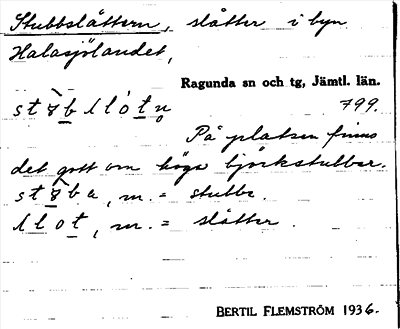 Stubbslåttern, slåtter i byn
Halasjölandet,
Ragunda sn och tg, Jämtl. län.
799.
På platsen finns
det gott om höga björkstubbar.
m. = stubbe
m. = slåtter.
BERTIL FLEMSTRÖM 1936.